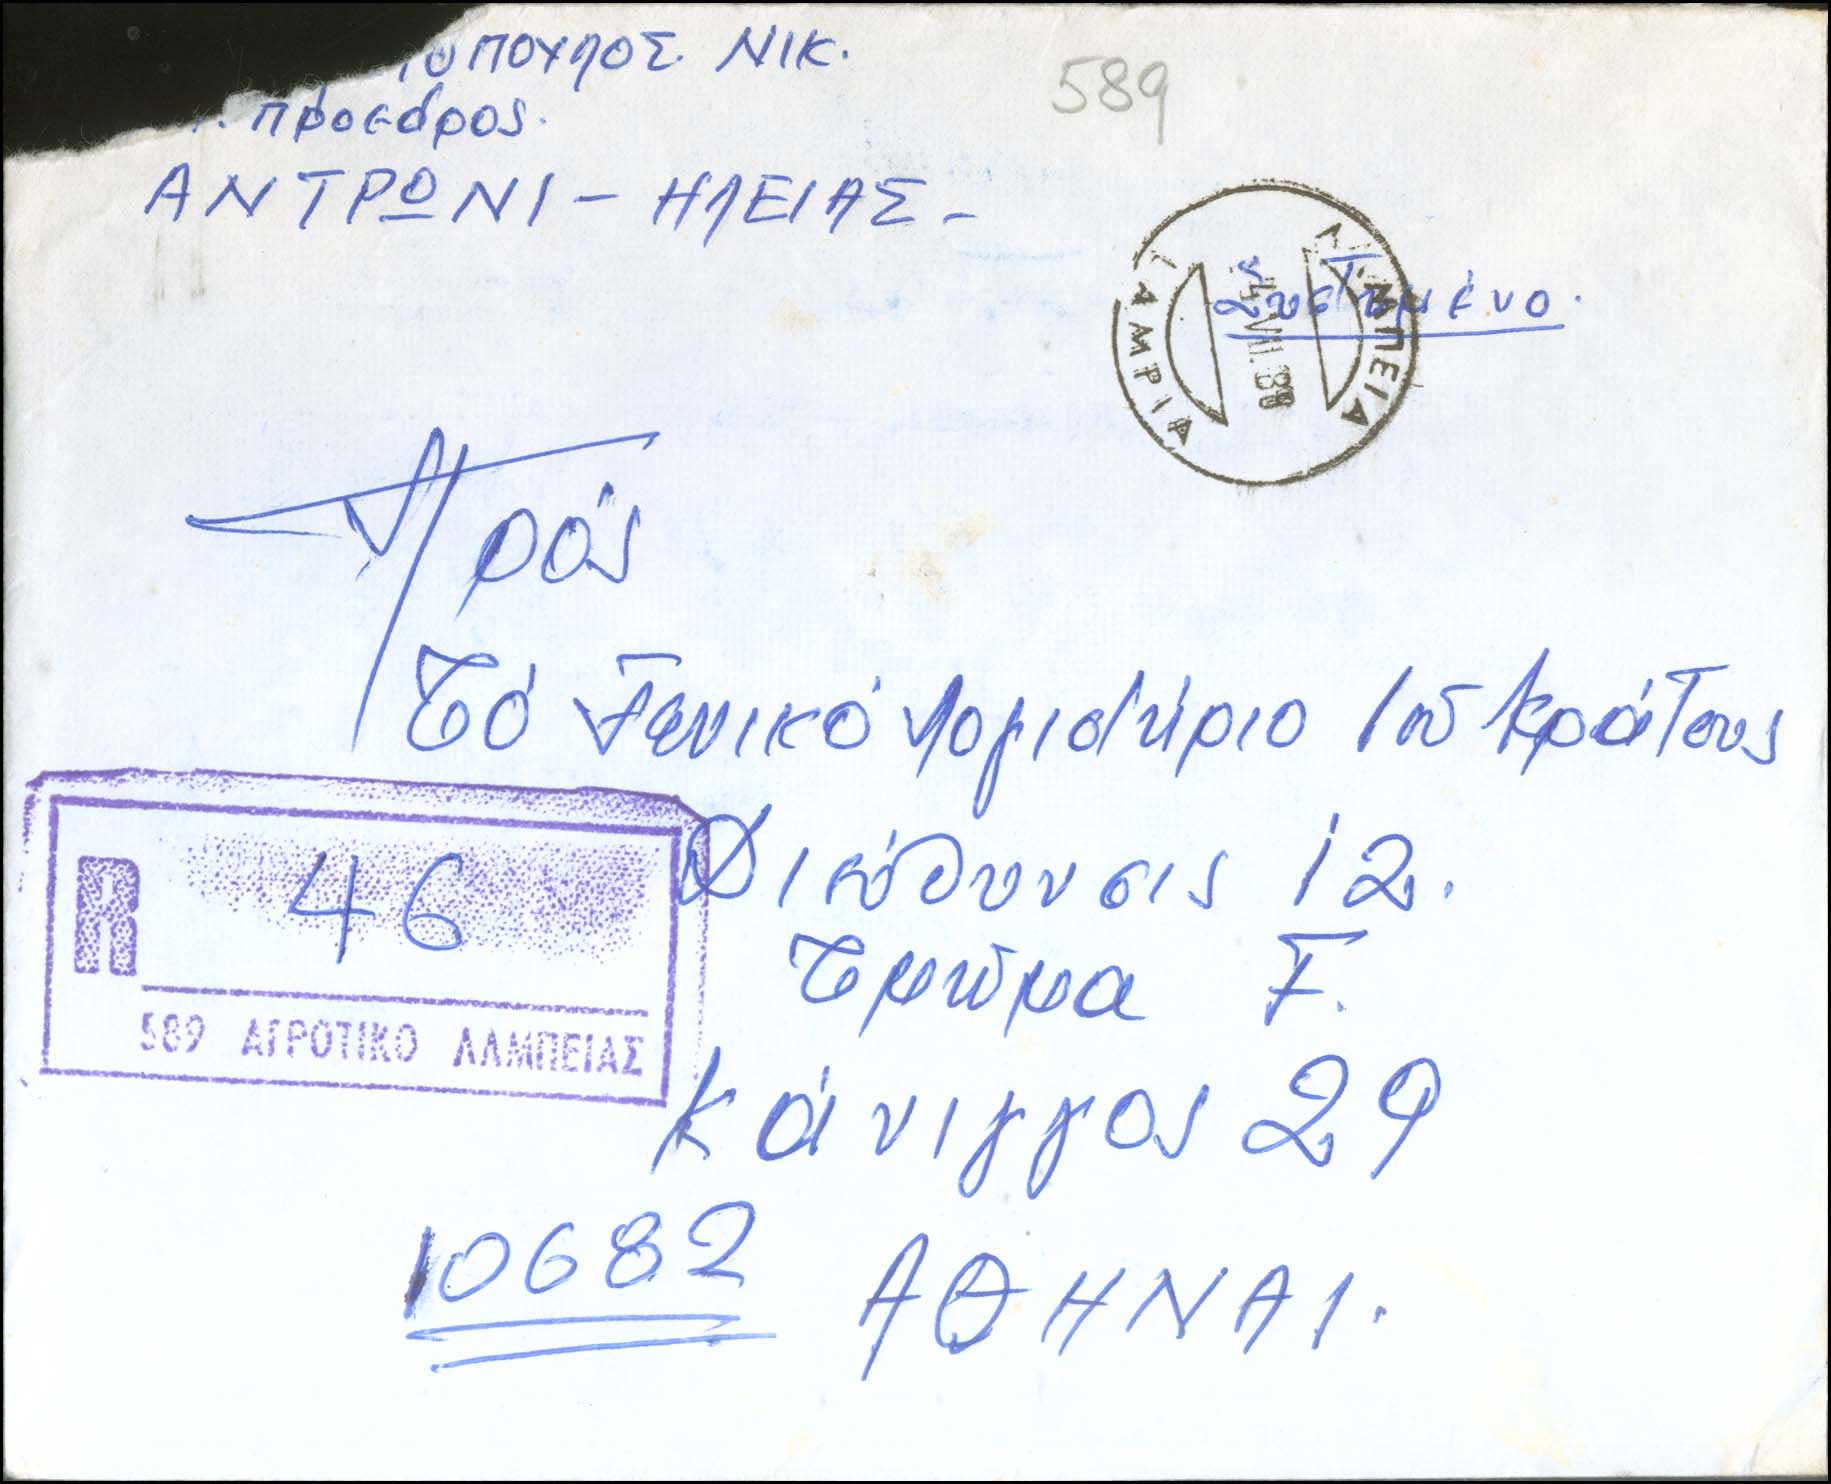 ΟΠΟΥΛΟΣ. ΝΙΚ.
πρόεδρος.
ΑΝΤΡΩΝΙ - ΗΛΕΙΑΣ -
589
Συστημένο.
ΛΑΜΠΕΙΑ
VIII.88
Πρός
Τό Γενικό Λογιστήριο Τοῦ Κράτους
Διεύθυνσις 12.
Τμῆμα Γ.
Κάνιγγος 29
10682 ΑΘΗΝΑΙ.
R 46
589 ΑΓΡΟΤΙΚΟ ΛΑΜΠΕΙΑΣ